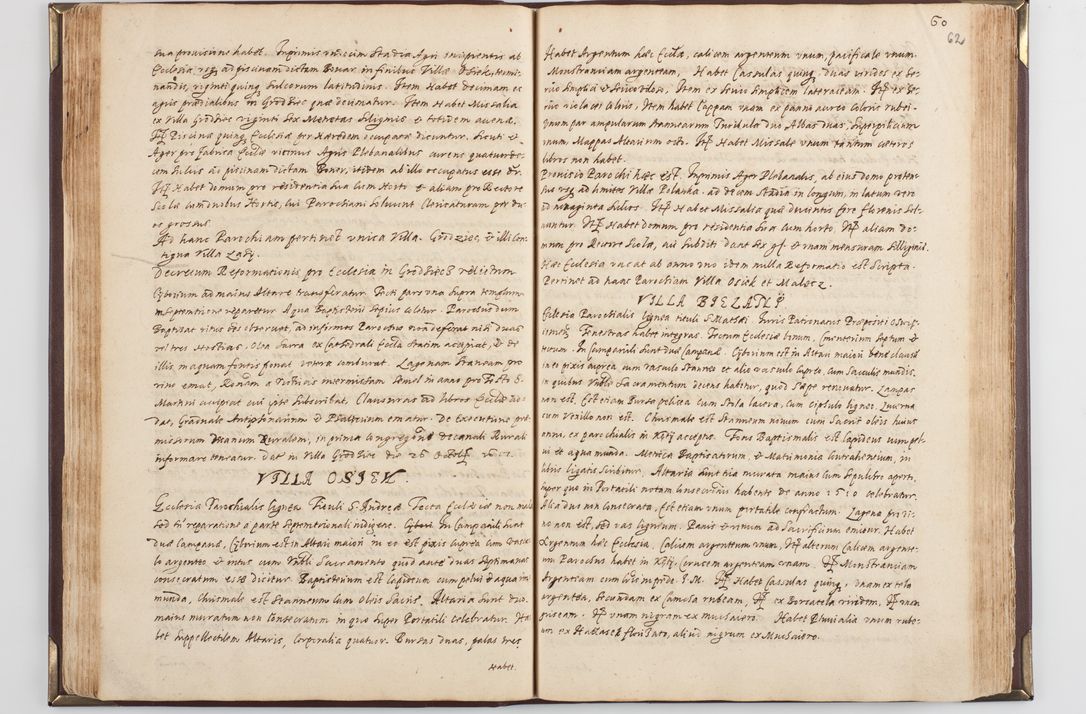 sua provisione habet. Inprimis undecim Stadia Agri incipientis ab
Ecclesia usq; ad piscinam dictam Bonar in finibus Villæ Osiek
nandis, viginti quinq; Sulcorum latitudinis. Item Habet decimam ex
agris prædialibus in Grodziec quæ decimatur. Item Habet Missalia
ex Villa Grodziec viginti sex Metretas Siliginis & totidem avenæ.
Itp Piscinæ quinq; Ecclesiæ per Hæredem occupatæ dicuntur. Sicuti &
Ager pro fabrica Ecclæ vicinus Agris Plebanalibus
cem Sulcis ad piscinam dictam Boner, itidem ab illo occupatus est
Itp Habet domum pro residentia sua cum Horti & aliam pro Rectore
Scolæ cum duobus Hortis, cui Parochiani solvunt Clericaturam per du
os grossus.
Ad hanc Parochiam pertinet unica Villa Grodziec, & illi Con
tigua Villa Lazy.
Decretum Reformationis pro Ecclesia in Grodziec relictum
Cyborium ad maius Altare transferatur. Tecti pars una supra templum
Septentrione reparetur Aqua Baptismi sæpius coletur. Parochus dum
Baptisat ritus observet, ad infirmos Parochus non deferat nisi duas
vel tres Hostias. Olea sacra ex Cathedrali Eccla statim accipiat, & de
illis in aquam fontis ponat, vetera comburat. Lagenam stanneam pro
vino emat, Rationem a Vitricis semel in anno pro Festo S.
Martini accipiat cui ipse subscribat, Clausuras ad libros Ecclæ
dat, Graduale Antiphonarium & Psalterium ematur. De executione præ
missorum Decanum Ruralem, in prima Congregatione decanali Rurali
informare teneatur. Dat in Villa Grodziec die 26
VILLA OSIEK.
Ecclesia Parochialis lignea Tituli S. Andreæ Tecta Ecclesiæ non male
sed reparatione a parte Septentrionali indiget. In Campanili sunt
duæ Campanæ, Cyborium est in Altari maiori in eo est pixis cuprea cum vascu
lo argenteo & intus cum Vnbli Sacramento quod ante duas septimanas
consecratum esse dicitur. Baptisterium est lapideum cum pelvi & aqua im
munda, Chrismale est Stanneum cum Oleis Sacris. Altaria sunt duo
maius muratum non consecratum in quo super Portatili celebratur. Ha
bet suppellectilem Altaris, Corporalia quatuor. Bursas duas, palas tres
Habet

60
62
Habet Argentum hæc Eccla, calicem argenteum unum, pacificale unum.
Monstrantiam argenteam, Habet Casulas quinq; duas virides ex se
rico simplici & Item ex serico simplicem lateritiam. Itp ex se
rico violacei coloris, Item Habet Cappam unam ex panno aureo coloris rubei
unum par ampularum stannearum Turibula duo Albas duas, superpelliceum
unum. Mappas Altarium octo. Itp Habet Missale unum tantum cæteros
libros non habet.
Provisio Parochi hæc est. Inprimis Ager Plebanalis, ab eius domo proten
sus usq; ad limites Villæ Polanka, ad decem Stadia in longum, in latum vero
ad nonaginta Sulcos. Itp Habet Missalia quæ fere florenis
untur. Itp Habet domum pro residentia sua cum horto. Itp aliam do
mum pro Rectore Scolæ, cui Subditi dant sex gr & unam mensuram silliginis.
Hæc Ecclesia vacat ab anno uno idem nulla Reformatio est Scripta.
Pertinet ad hanc Parochiam Villa Osiek et Malecz.
VILLA BIELANY
Eclesia Parochialis lignea tituli S. Matthæi. Iuris Patronatus Præpositi Osvie
cimens. Fenestras habet integras. Tectum Ecclesiæ bonum, Cmenterium septum &
tectum. In Campanili sunt duæ Campanæ. Cyborium est in Altari maiori bene clausū
in eo pixis cuprea, cum vasculo stanneo et alio vasculo cupreo, cum sacculis mundis,
in quibus Vnble Sacramentum decens habetur, quod sæpe renovatur. Lampas
non est. Est etiam Bursa pellicea cum stola lacera, cum cipsulo ligneo, Lucerna
cum Vexillo non est. Chrismale est stanneum novum cum sacris oleis huius
anni, ex parochialis in Kęty acceptis. Fons Baptismalis est lapideus cum pel
vi et aqua munda. Metrica Baptisatorum, & Matrimonia Contrahentium, in
libris ligatis scribitur. Altaria sunt tria murata maius cum sepulchro aperto,
super quo in Portatili notam consecrationis habente de anno 1510 celebratur.
Alia duo non consecrata. Est etiam unum portatile confractum. Lagena pro vi
no non est, sed vas ligneum. Panis & vinum ad Sacrificium emitur. Habet
Argentum hæc Ecclesia. Calicem argenteum unum, Itp alterum Calicem argente
um Parochus habet in Kęty, crucem argenteam unam. Itp Monstrantiam
Argenteam cum Itp Habet Cassulas quinq; unam ex tela
argentea, secundam ex Camcha rubeam, Itp ex Boreatela viridem, Itp unam
fuscam. Itp unam nigram ex mucaiero. Habet Pluvialia unum rube
um ex aliud nigrum ex Mucaiero.